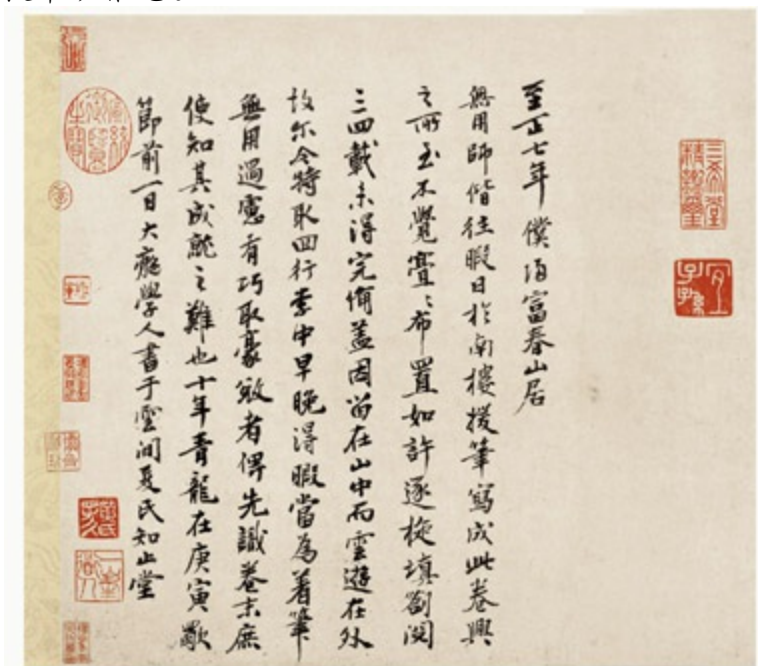 三希堂精鑑璽
宜子孫
至正七年僕歸富春山居
無用師偕往暇日於南樓援筆寫成此卷興
之所至不覺亹〻布置如許逐旋填劄閱
三四載未得完備盖因留在山中而雲遊在外
故尔今特取回行李中早晚得暇當為着筆
無用過慮有巧取豪敓者俾先識卷末庶
使知其成就之難也十年青龍在庚寅歜
節前一日大癡學人書于雲間夏氏知止堂